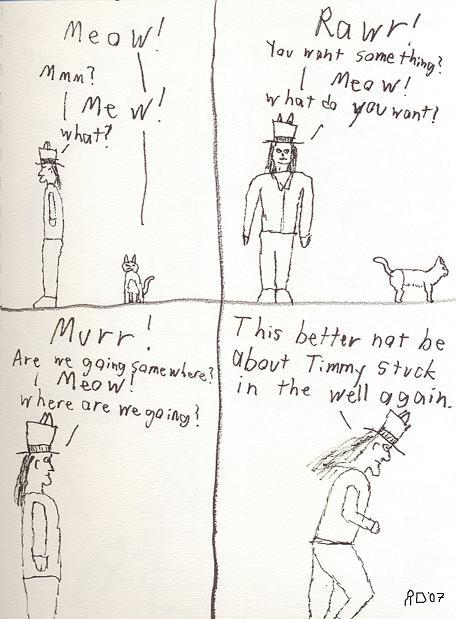 Meow!
Mmm?
Me w!
what?
Rawr!
You want something?
Meow!
what do you want?
Murr!
Are we going somewhere?
Meow!
where are we going?
This better not be
about Timmy stuck
in the well again.
RD'07